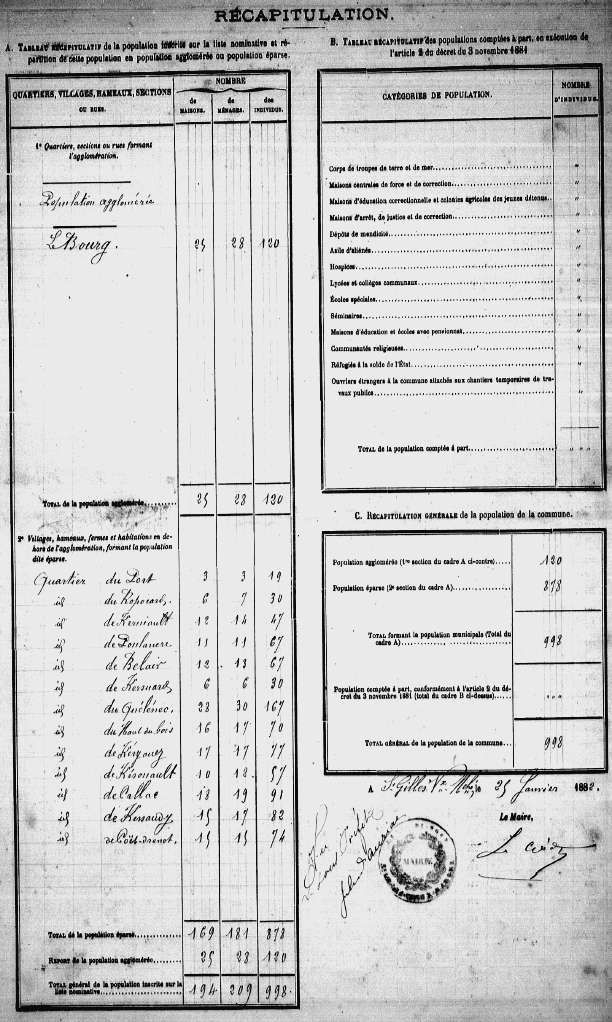 RÉCAPITULATION.
A. TABLEAU RÉCAPITULATIF de la population inscrite sur la liste nominative et ré-
partition de cette population en population agglomérée ou population éparse.
QUARTIERS, VILLAGES, HAMEAUX, SECTIONS
OU RUES.
NOMBRE
de MAISONS. de MÉNAGES. des INDIVIDUS.
1º Quartiers, sections ou rues formant
l'agglomération.
Population agglomérée
Le Bourg. 25 28 120
TOTAL de la population agglomérée.......... 25 28 120
2º Villages, hameaux, fermes et habitations en de-
hors de l'agglomération, formant la population
dite éparse.
Quartier du Port 3 3 19
id 6 7 30
id de 12 14 47
id de 11 11 67
id de Belair 12 13 67
id de 6 6 30
id du Quélénec 28 30 167
id du Haut du bois 16 17 70
id de 17 17 77
id de 10 12 57
id de Callac 18 19 91
id de 15 17 82
id de 15 15 74
TOTAL de la population éparse.............. 169 181 878
REPORT de la population agglomérée........ 25 28 120
TOTAL général de la population inscrite sur la
liste nominative.............. 194 209 998.
B. TABLEAU RÉCAPITULATIF des populations comptées à part, en exécution de
l'article 2 du décret du 3 novembre 1881
CATÉGORIES DE POPULATION.
NOMBRE
D'INDIVIDUS.
Corps de troupes de terre et de mer........ "
Maisons centrales de force et de correction........ "
Maisons d'éducation correctionnelle et colonies agricoles des jeunes détenus.. "
Maisons d'arrêt, de justice et de correction........ "
Dépôts de mendicité........ "
Asile d'aliénés........ "
Hospices........ "
Lycées et collèges communaux........ "
Écoles spéciales........ "
Séminaires........ "
Maisons d'éducation et écoles avec pensionnat........ "
Communautés religieuses........ "
Réfugiés à la solde de l'État........ "
Ouvriers étrangers à la commune attachés aux chantiers temporaires de tra-
vaux publics........ "
TOTAL de la population comptée à part........ " " "
C. RÉCAPITULATION GÉNÉRALE de la population de la commune.
Population agglomérée (1re section du cadre A ci-contre)..... 120
Population éparse (2e section du cadre A)........ 878
TOTAL formant la population municipale (Total du
cadre A)........ 998
Population comptée à part, conformément à l'article 2 du dé-
cret du 3 novembre 1881 (total du cadre B ci-dessus)...... " " "
TOTAL GÉNÉRAL de la population de la commune...... 998
A St Gilles le 25 Janvier 1882.
Le Maire,
Vu
MAIRIE